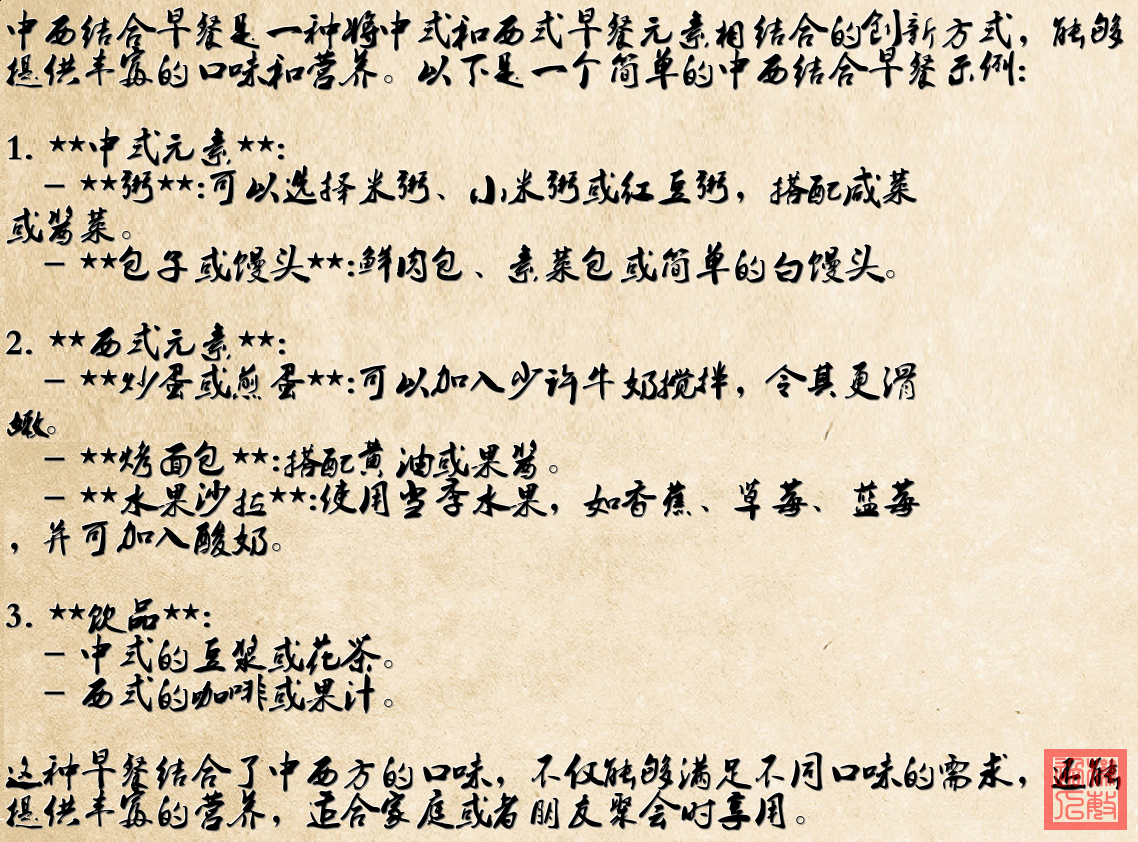 中西结合早餐是一种将中式和西式早餐元素相结合的创新方式，能够
提供丰富的口味和营养。以下是一个简单的中西结合早餐示例：
1. **中式元素**:
- **粥**:可以选择米粥、小米粥或红豆粥，搭配咸菜
或酱菜。
- **包子或馒头**:鲜肉包、素菜包或简单的白馒头。
2. **西式元素**:
- **炒蛋或煎蛋**:可以加入少许牛奶搅拌，令其更滑
嫩。
- **烤面包**:搭配黄油或果酱。
- **水果沙拉**:使用当季水果，如香蕉、草莓、蓝莓
，并可加入酸奶。
3. **饮品**:
- 中式的豆浆或花茶。
- 西式的咖啡或果汁。
这种早餐结合了中西方的口味，不仅能够满足不同口味的需求，还能
提供丰富的营养，适合家庭或者朋友聚会时享用。